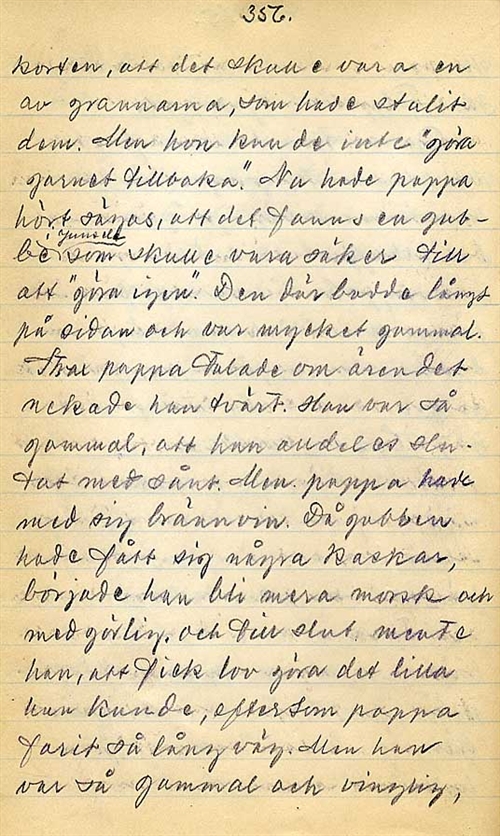 356.
korten, att det skulle vara en
av grannarna, som hade stulit
dem. Men hon kunde inte "göra
garnet tillbaka". Nu hade pappa
hört sägas, att det fanns en gub-
be i Junsele som skulle vara säker till
att "göra igen". Den där bodde långt
på sidan och var mycket gammal.
När pappa talade om ärendet
nekade han tvärt. Han var så
gammal, att han alldeles slu-
tat med sånt. Men pappa hade
med sig brännvin. Då gubben
hade fått sig några kaskar,
började han bli mera morsk och
medgörlig, och till slut mente
han, att fick lov göra det lilla
han kunde, eftersom pappa
farit så lång väg. Men han
var så gammal och vinglig,